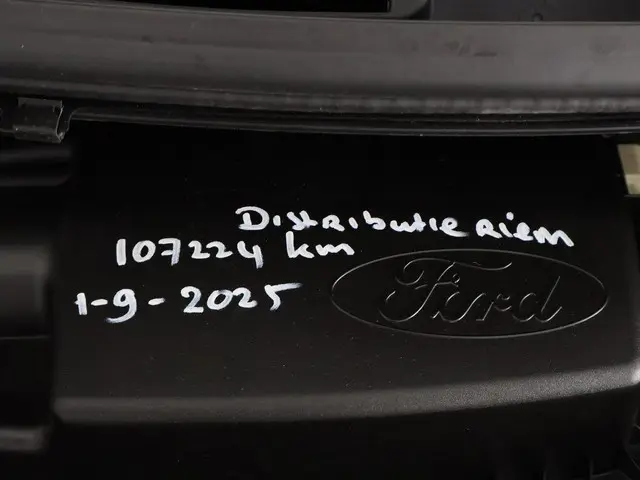 Distributie Riem
107224 km
1-9-2025
Ford